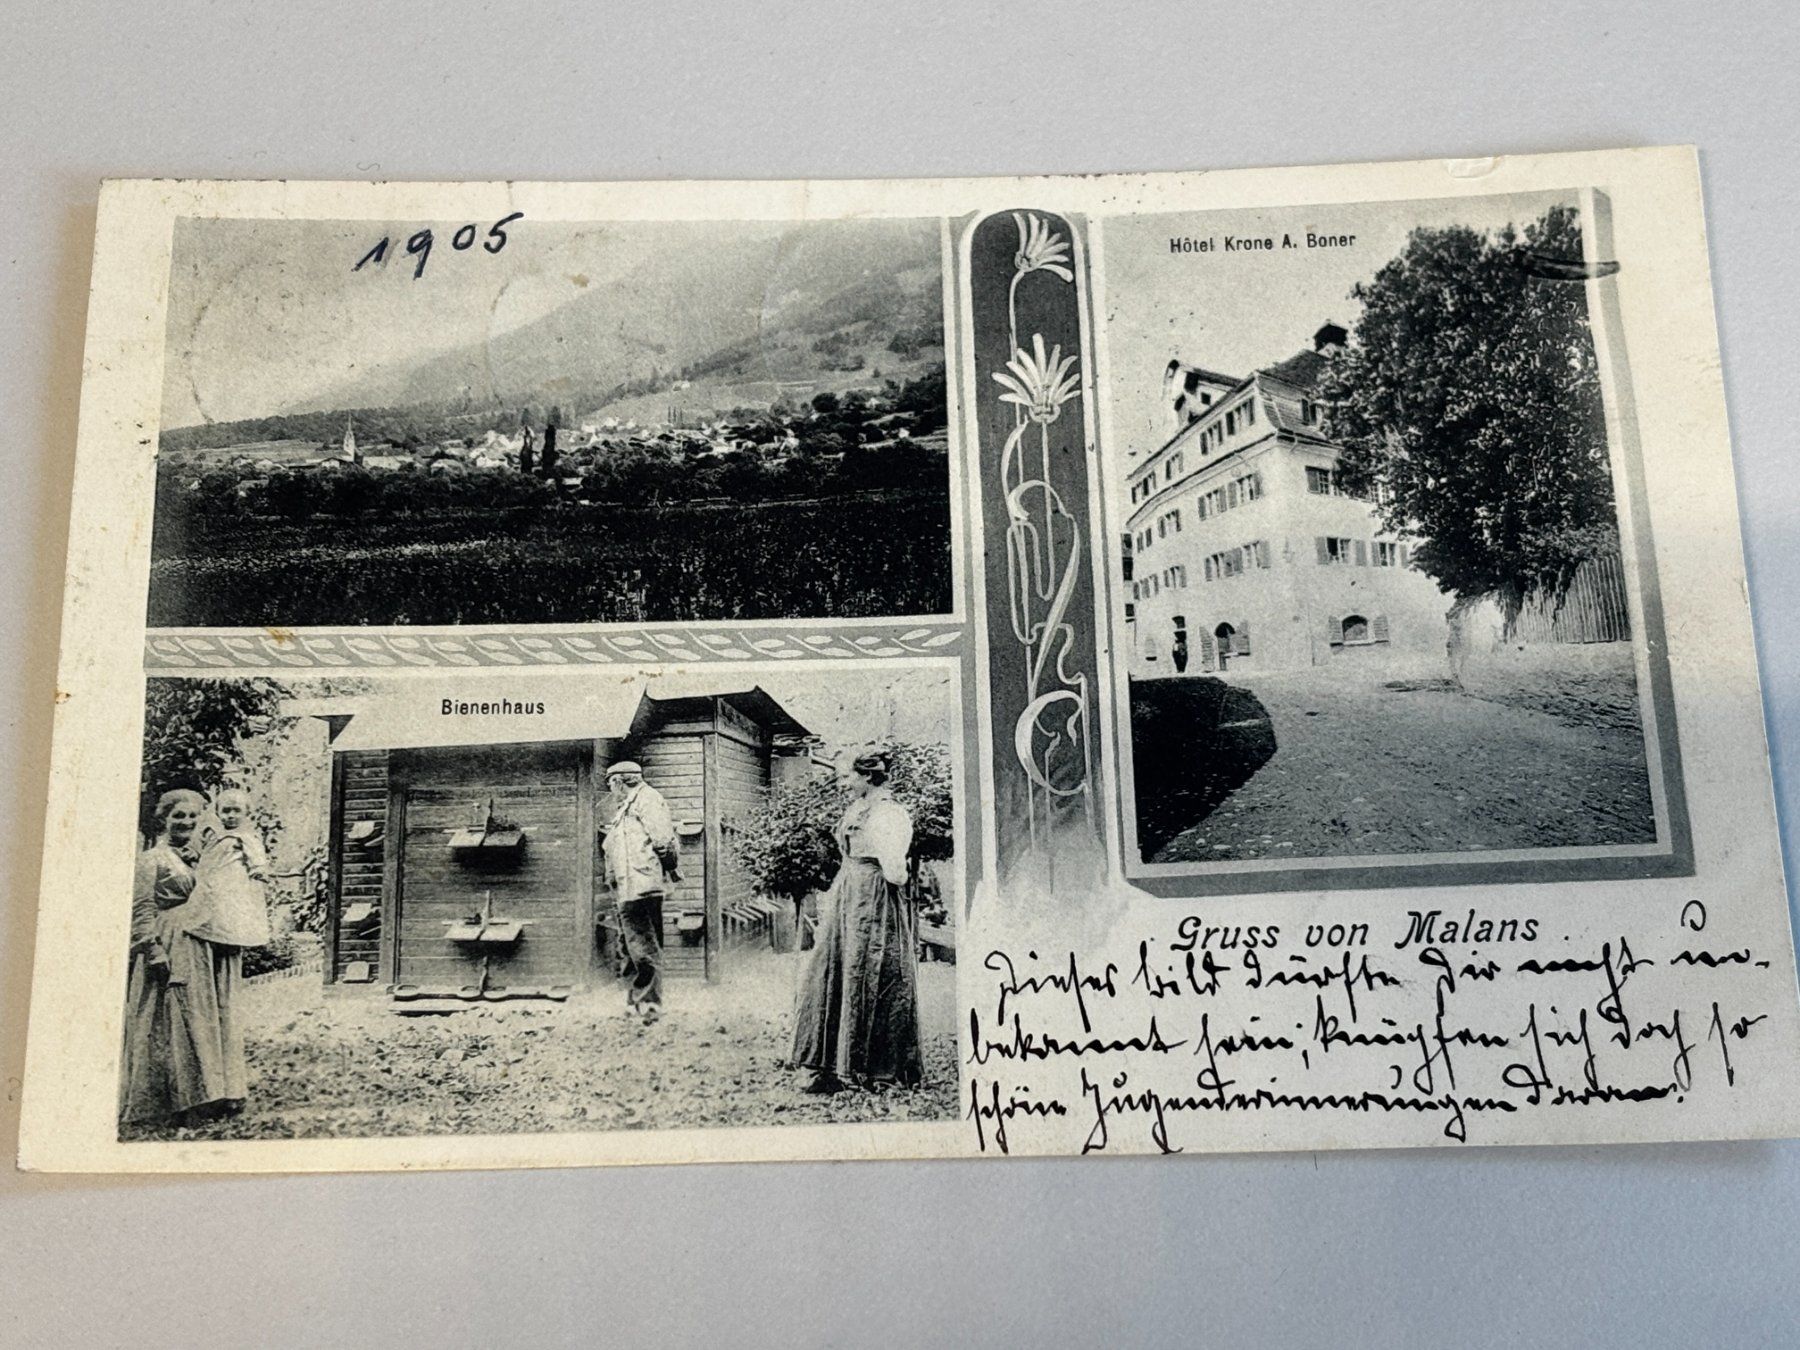 1905
Hôtel Krone A. Boner
Bienenhaus
Gruss von Malans
Dieses Bild dürfte Dir nicht un-
bekannt sein; knüpfen sich doch so
schöne Jugenderinnerungen daran!